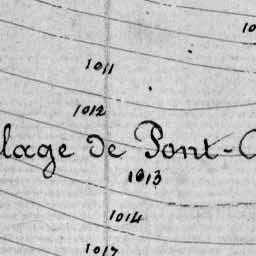 10
1011
1012
lage de Pont-
1013
1014
1017